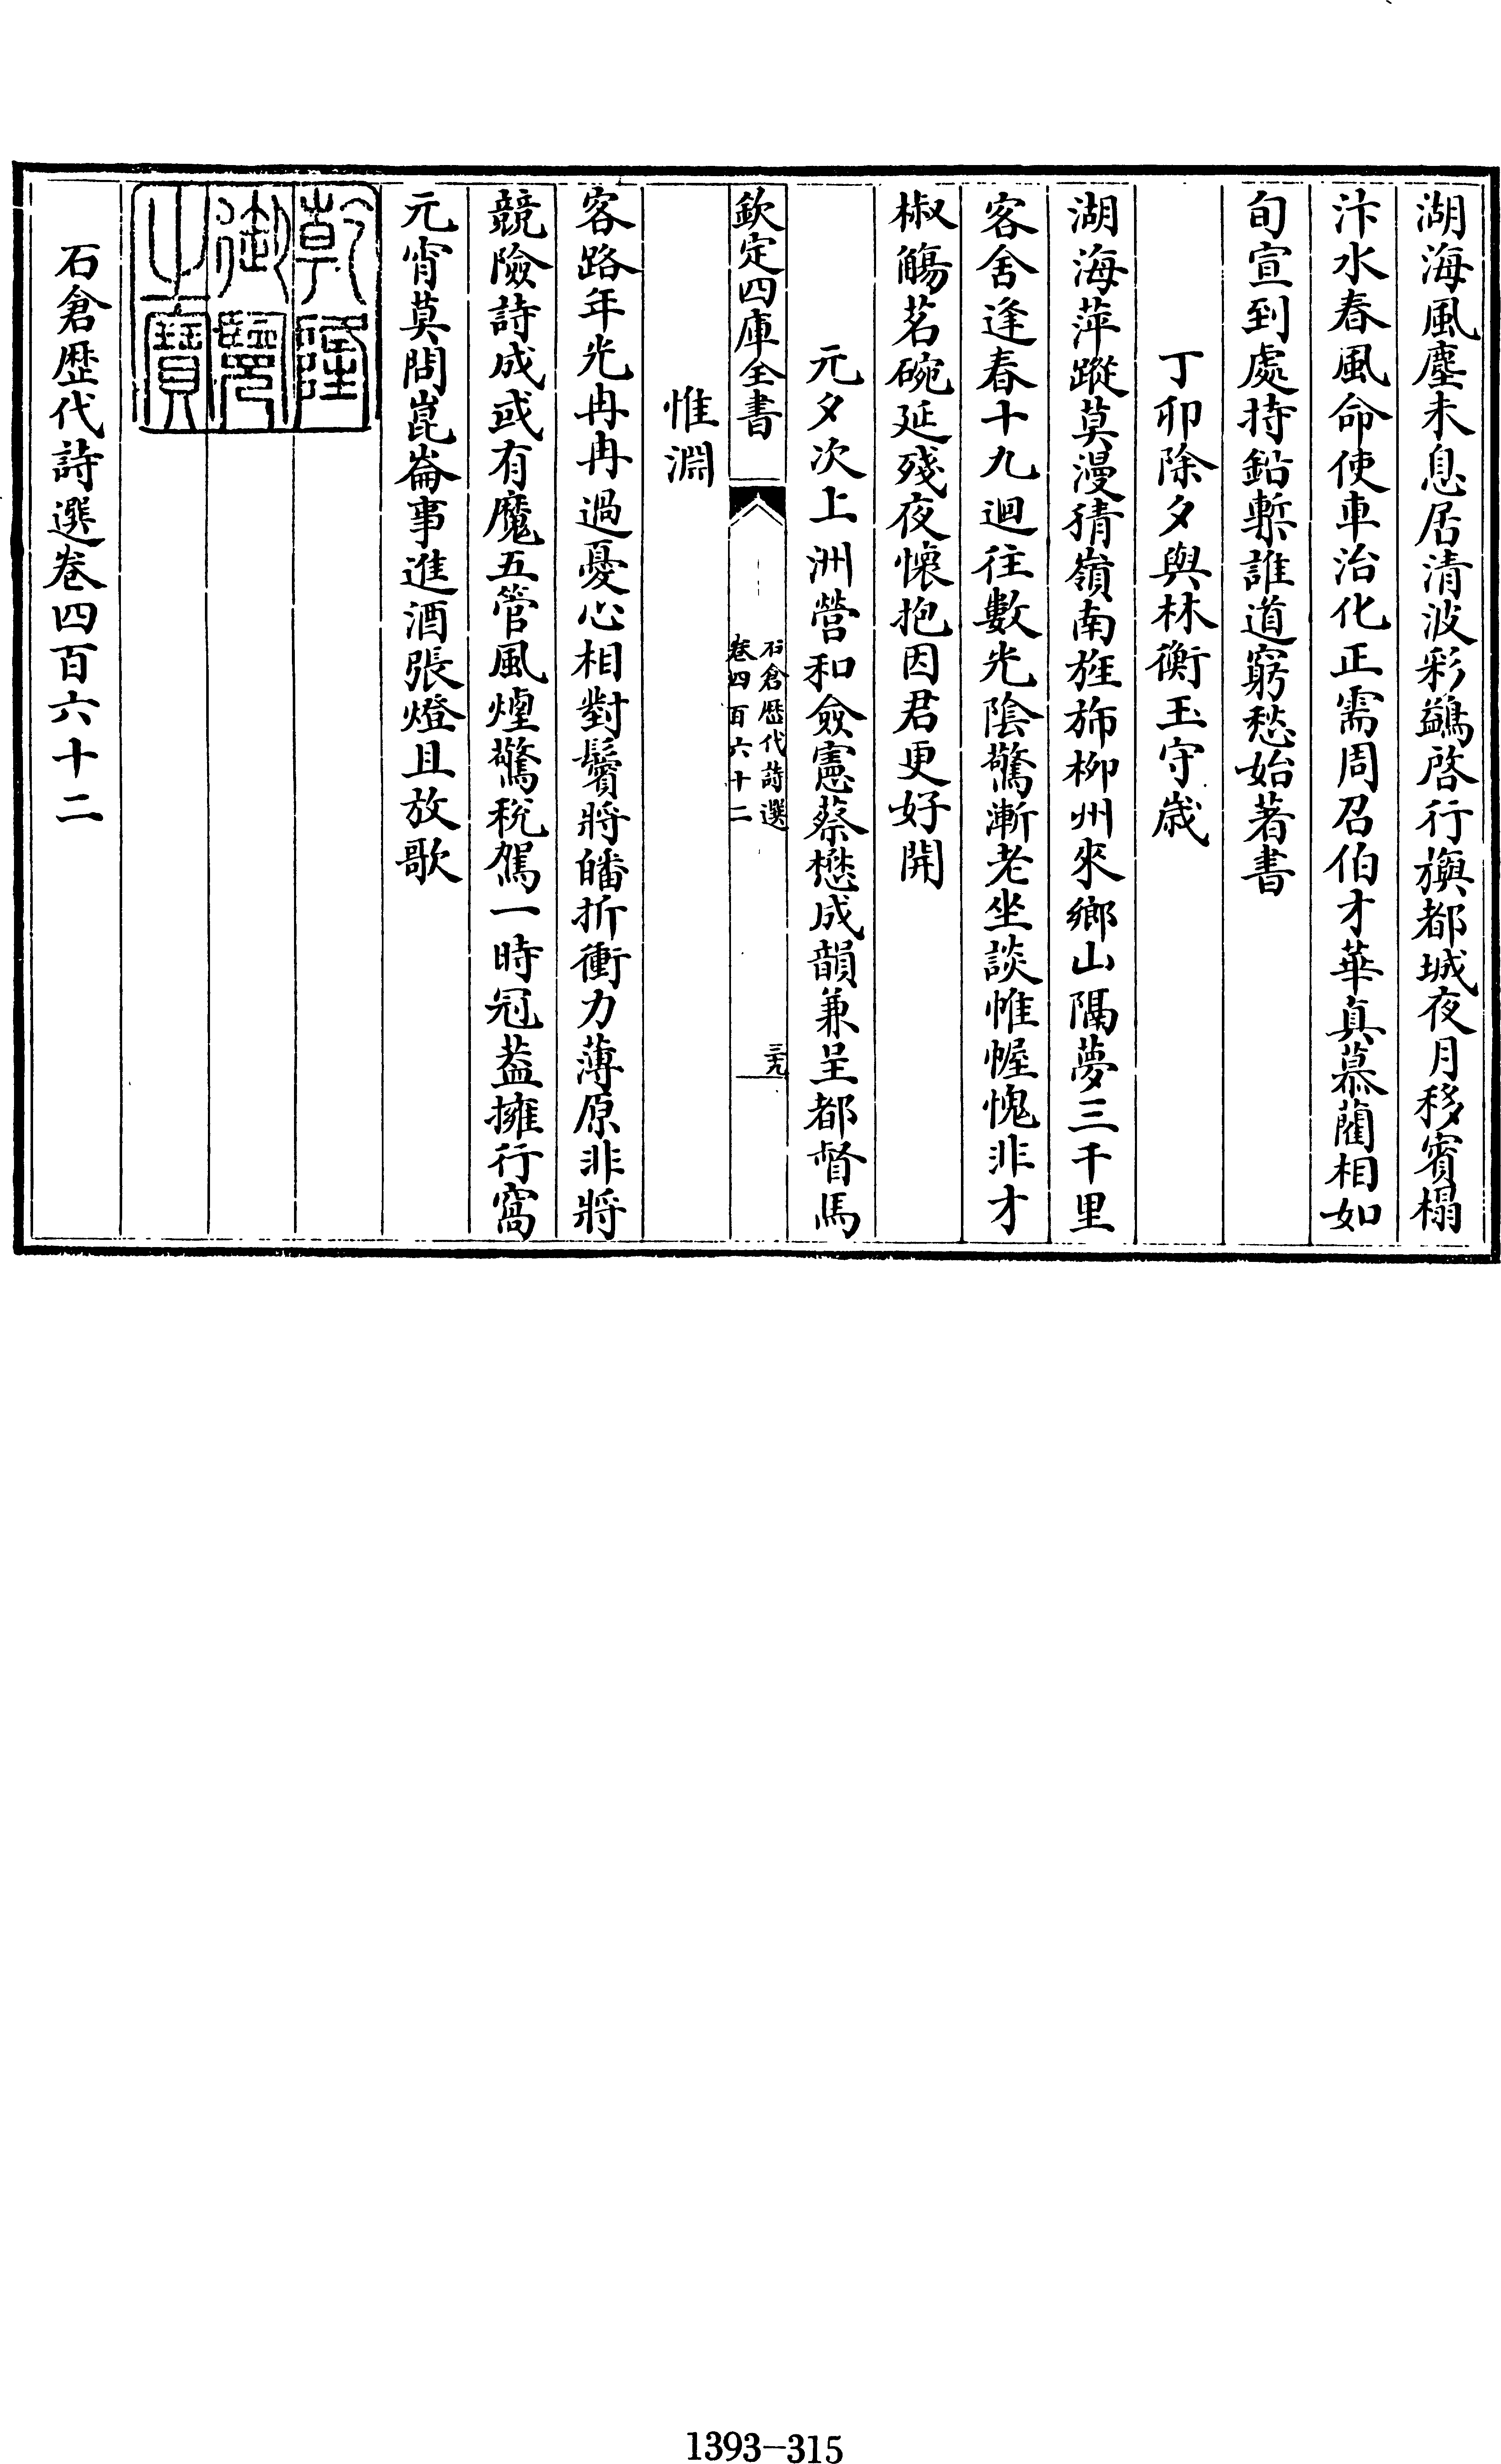 湖海風塵未息居清波彩鷁啓行旟都城夜月移賓榻
汴水春風命使車治化正需周召伯才華真慕藺相如
旬宣到處持鉛槧誰道窮愁始著書
丁卯除夕與林衡玉守歲
湖海萍蹤莫漫猜嶺南旌斾柳州來鄉山隔夢三千里
客舍逢春十九迴往數光陰驚漸老坐談帷幄愧非才
椒觴茗碗延殘夜懷抱因君更好開
元夕次上洲營和僉憲蔡懋成韻兼呈都督馬
欽定四庫全書
石倉歷代詩選
卷四百六十二
三九
惟淵
客路年光冉冉過憂心相對鬢將皤折衝力薄原非將
競險詩成或有魔五管風煙驚稅駕一時冠葢擁行窩
元宵莫問崑崙事進酒張燈且放歌
乾隆
御覽
之寶
石倉歷代詩選卷四百六十二
1393-315